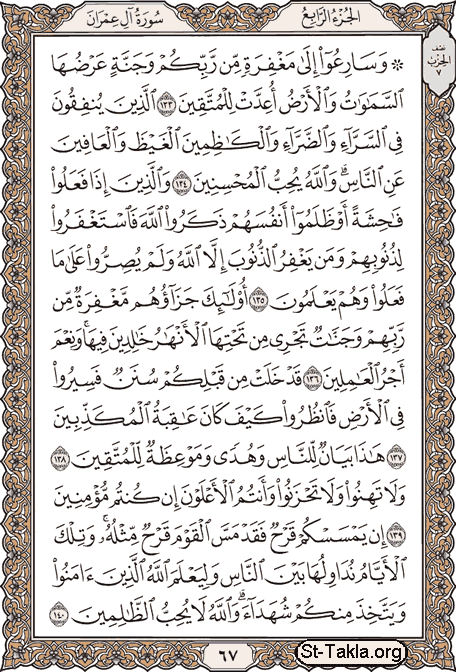 سُورَةُ آلِ عِمْرَانَ
الجُزْءُ الرَّابِعُ
نصف
الحزب
٧
۞ وَسَارِعُوٓا۟ إِلَىٰ مَغْفِرَةٍ مِّن رَّبِّكُمْ وَجَنَّةٍ عَرْضُهَا
ٱلسَّمَٰوَٰتُ وَٱلْأَرْضُ أُعِدَّتْ لِلْمُتَّقِينَ ١٣٣ ٱلَّذِينَ يُنفِقُونَ
فِى ٱلسَّرَّآءِ وَٱلضَّرَّآءِ وَٱلْكَٰظِمِينَ ٱلْغَيْظَ وَٱلْعَافِينَ
عَنِ ٱلنَّاسِ ۗ وَٱللَّهُ يُحِبُّ ٱلْمُحْسِنِينَ ١٣٤ وَٱلَّذِينَ إِذَا فَعَلُوا۟
فَٰحِشَةً أَوْ ظَلَمُوٓا۟ أَنفُسَهُمْ ذَكَرُوا۟ ٱللَّهَ فَٱسْتَغْفَرُوا۟
لِذُنُوبِهِمْ وَمَن يَغْفِرُ ٱلذُّنُوبَ إِلَّا ٱللَّهُ وَلَمْ يُصِرُّوا۟ عَلَىٰ مَا
فَعَلُوا۟ وَهُمْ يَعْلَمُونَ ١٣٥ أُو۟لَٰٓئِكَ جَزَآؤُهُم مَّغْفِرَةٌ مِّن
رَّبِّهِمْ وَجَنَّٰتٌ تَجْرِى مِن تَحْتِهَا ٱلْأَنْهَٰرُ خَٰلِدِينَ فِيهَا ۚ وَنِعْمَ
أَجْرُ ٱلْعَٰمِلِينَ ١٣٦ قَدْ خَلَتْ مِن قَبْلِكُمْ سُنَنٌ فَسِيرُوا۟
فِى ٱلْأَرْضِ فَٱنظُرُوا۟ كَيْفَ كَانَ عَٰقِبَةُ ٱلْمُكَذِّبِينَ
١٣٧ هَٰذَا بَيَانٌ لِّلنَّاسِ وَهُدًى وَمَوْعِظَةٌ لِّلْمُتَّقِينَ ١٣٨
وَلَا تَهِنُوا۟ وَلَا تَحْزَنُوا۟ وَأَنتُمُ ٱلْأَعْلَوْنَ إِن كُنتُم مُّؤْمِنِينَ
١٣٩ إِن يَمْسَسْكُمْ قَرْحٌ فَقَدْ مَسَّ ٱلْقَوْمَ قَرْحٌ مِّثْلُهُۥ ۚ وَتِلْكَ
ٱلْأَيَّامُ نُدَاوِلُهَا بَيْنَ ٱلنَّاسِ وَلِيَعْلَمَ ٱللَّهُ ٱلَّذِينَ ءَامَنُوا۟
وَيَتَّخِذَ مِنكُمْ شُهَدَآءَ ۗ وَٱللَّهُ لَا يُحِبُّ ٱلظَّٰلِمِينَ ١٤٠
٦٧
St-Takla.org